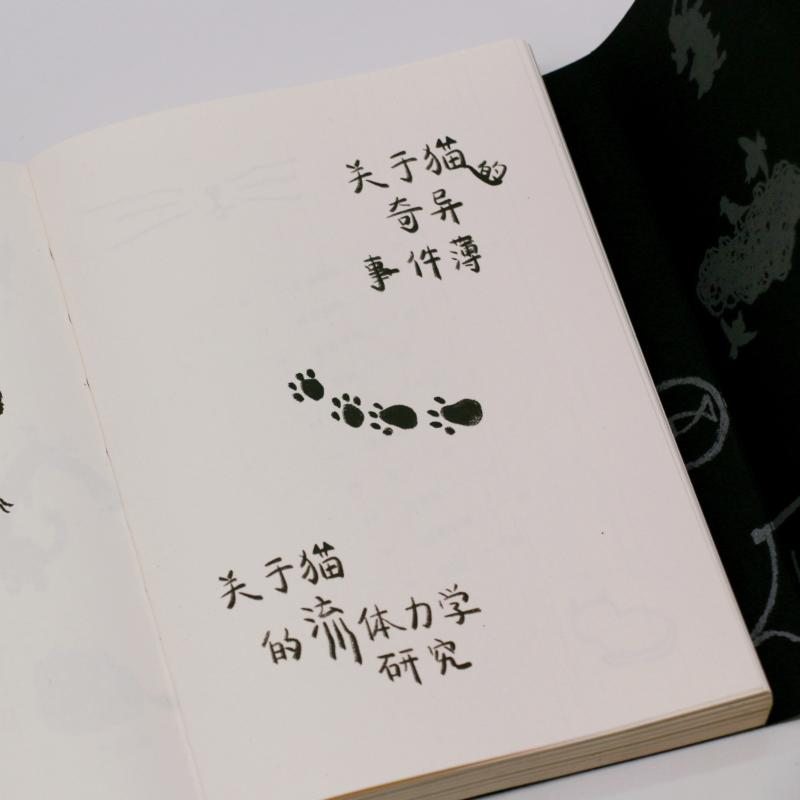 关于猫的
奇异
事件薄
关于猫
的流体力学
研究